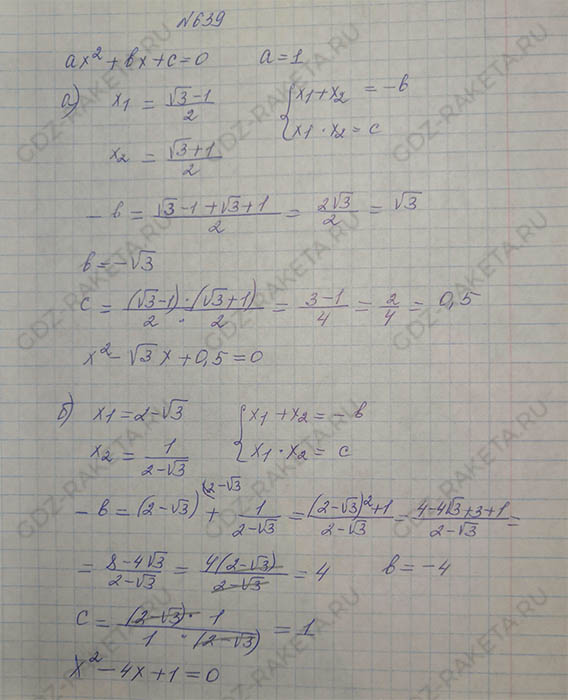 №639
ax² + bx + c = 0   a = 1
а) x₁ = (√3 - 1)/2   { x₁ + x₂ = -b
x₂ = (√3 + 1)/2   { x₁ · x₂ = c
- b = (√3 - 1 + √3 + 1)/2 = 2√3/2 = √3
b = -√3
c = (√3-1)·(√3+1)/(2 · 2) = (3-1)/4 = 2/4 = 0,5
x² - √3 x + 0,5 = 0
б) x₁ = 2-√3   { x₁ + x₂ = - b
x₂ = 1/(2-√3)   { x₁ · x₂ = c
- b = (2-√3) (2-√3 + 1/(2-√3) = ((2-√3)² + 1)/(2-√3) = (4-4√3+3+1)/(2-√3) =
= (8-4√3)/(2-√3) = 4(2-√3)/(2-√3) = 4   b = -4
c = (2-√3) · 1/(1 · (2-√3)) = 1
x² - 4x + 1 = 0
GDZ-RAKETA.RU